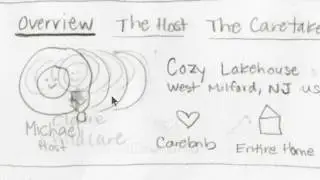 Overview The Host The Caretake
Cozy Lakehouse
West Milford, NJ US
Michael
Host
Carebnb
Entire Home